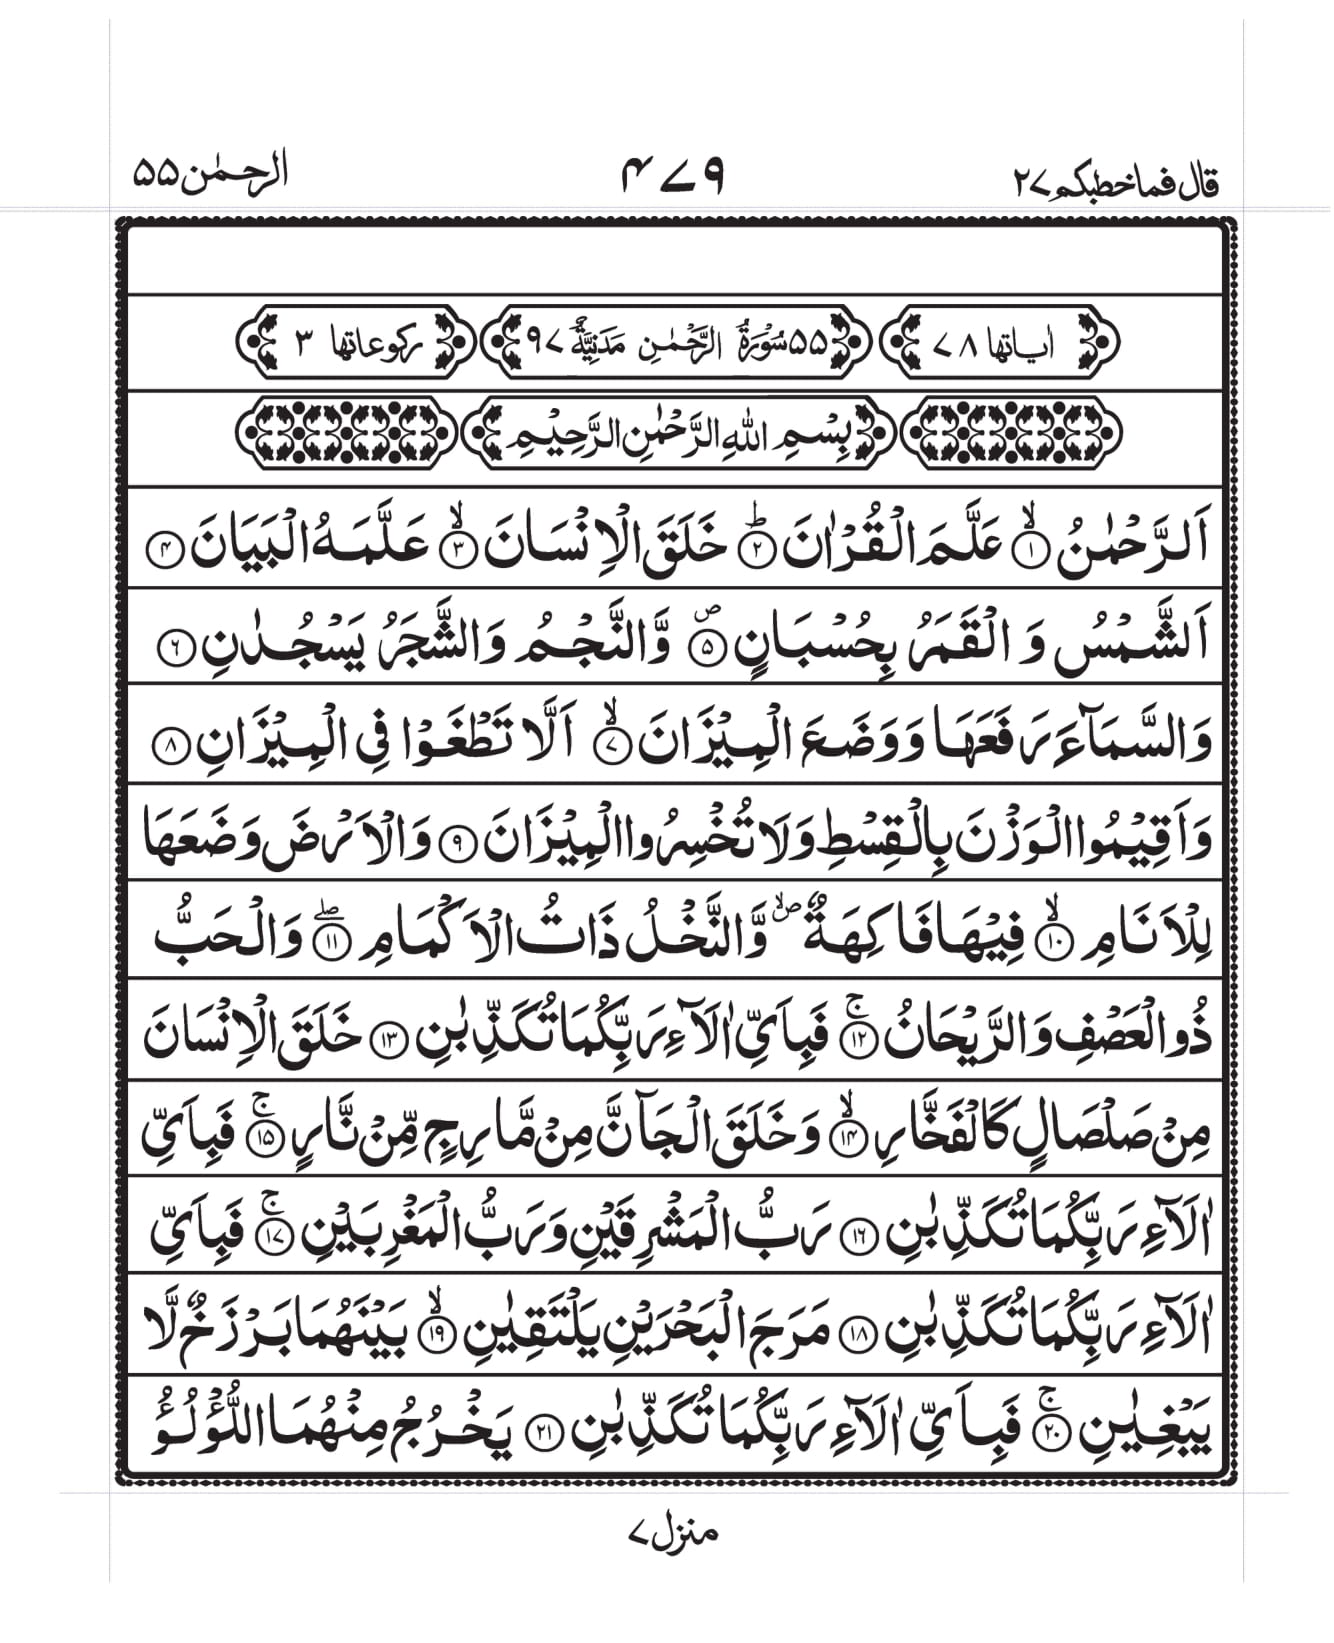 قال فما خطبکم ۲۷ ۴۷۹ الرحمٰن ۵۵
اٰیاتها ۷۸ ۵۵ سُوْرَةُ الرَّحْمٰنِ مَدَنِيَّةٌ ۹۷ رکوعاتها ۳
بِسْمِ اللهِ الرَّحْمٰنِ الرَّحِيْمِ
اَلرَّحْمٰنُ ۙ﴿۱﴾ عَلَّمَ الْقُرْاٰنَ ؕ﴿۲﴾ خَلَقَ الْاِنْسَانَ ۙ﴿۳﴾ عَلَّمَهُ الْبَيَانَ ﴿۴﴾
اَلشَّمْسُ وَ الْقَمَرُ بِحُسْبَانٍ ۪﴿۵﴾ وَّالنَّجْمُ وَالشَّجَرُ يَسْجُدٰنِ ﴿۶﴾
وَالسَّمَآءَ رَفَعَهَا وَوَضَعَ الْمِيْزَانَ ۙ﴿۷﴾ اَلَّا تَطْغَوْا فِى الْمِيْزَانِ ﴿۸﴾
وَاَقِيْمُوا الْوَزْنَ بِالْقِسْطِ وَلَا تُخْسِرُوا الْمِيْزَانَ ﴿۹﴾ وَالْاَرْضَ وَضَعَهَا
لِلْاَنَامِ ۙ﴿۱۰﴾ فِيْهَا فَاكِهَةٌ ۪ۙ وَّالنَّخْلُ ذَاتُ الْاَكْمَامِ ۖ﴿۱۱﴾ وَالْحَبُّ
ذُو الْعَصْفِ وَالرَّيْحَانُ ۚ﴿۱۲﴾ فَبِاَيِّ اٰلَآءِ رَبِّكُمَا تُكَذِّبٰنِ ﴿۱۳﴾ خَلَقَ الْاِنْسَانَ
مِنْ صَلْصَالٍ كَالْفَخَّارِ ۙ﴿۱۴﴾ وَخَلَقَ الْجَآنَّ مِنْ مَّارِجٍ مِّنْ نَّارٍ ۚ﴿۱۵﴾ فَبِاَيِّ
اٰلَآءِ رَبِّكُمَا تُكَذِّبٰنِ ﴿۱۶﴾ رَبُّ الْمَشْرِقَيْنِ وَرَبُّ الْمَغْرِبَيْنِ ۚ﴿۱۷﴾ فَبِاَيِّ
اٰلَآءِ رَبِّكُمَا تُكَذِّبٰنِ ﴿۱۸﴾ مَرَجَ الْبَحْرَيْنِ يَلْتَقِيٰنِ ۙ﴿۱۹﴾ بَيْنَهُمَا بَرْزَخٌ لَّا
يَبْغِيٰنِ ۚ﴿۲۰﴾ فَبِاَيِّ اٰلَآءِ رَبِّكُمَا تُكَذِّبٰنِ ﴿۲۱﴾ يَخْرُجُ مِنْهُمَا اللُّؤْلُؤُ
منزل ۷